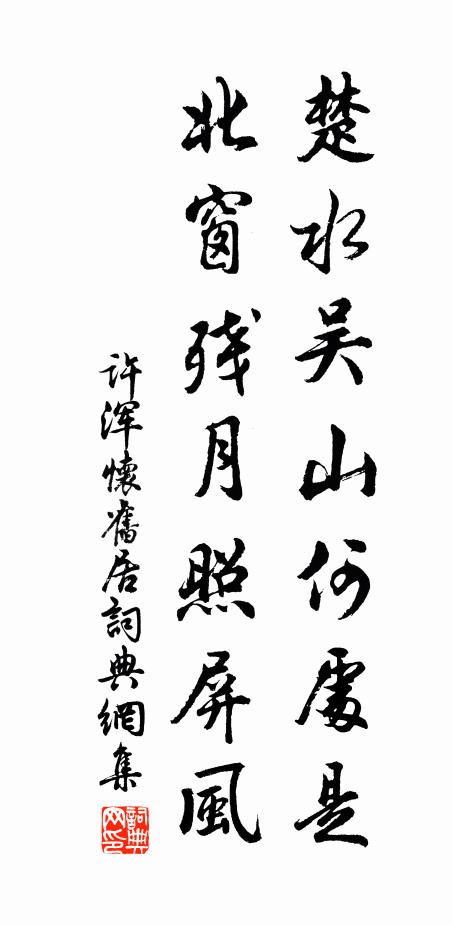 楚水吴山何處是
北窗残月照屏風
許渾懷舊居詞典網集
詞典
网印